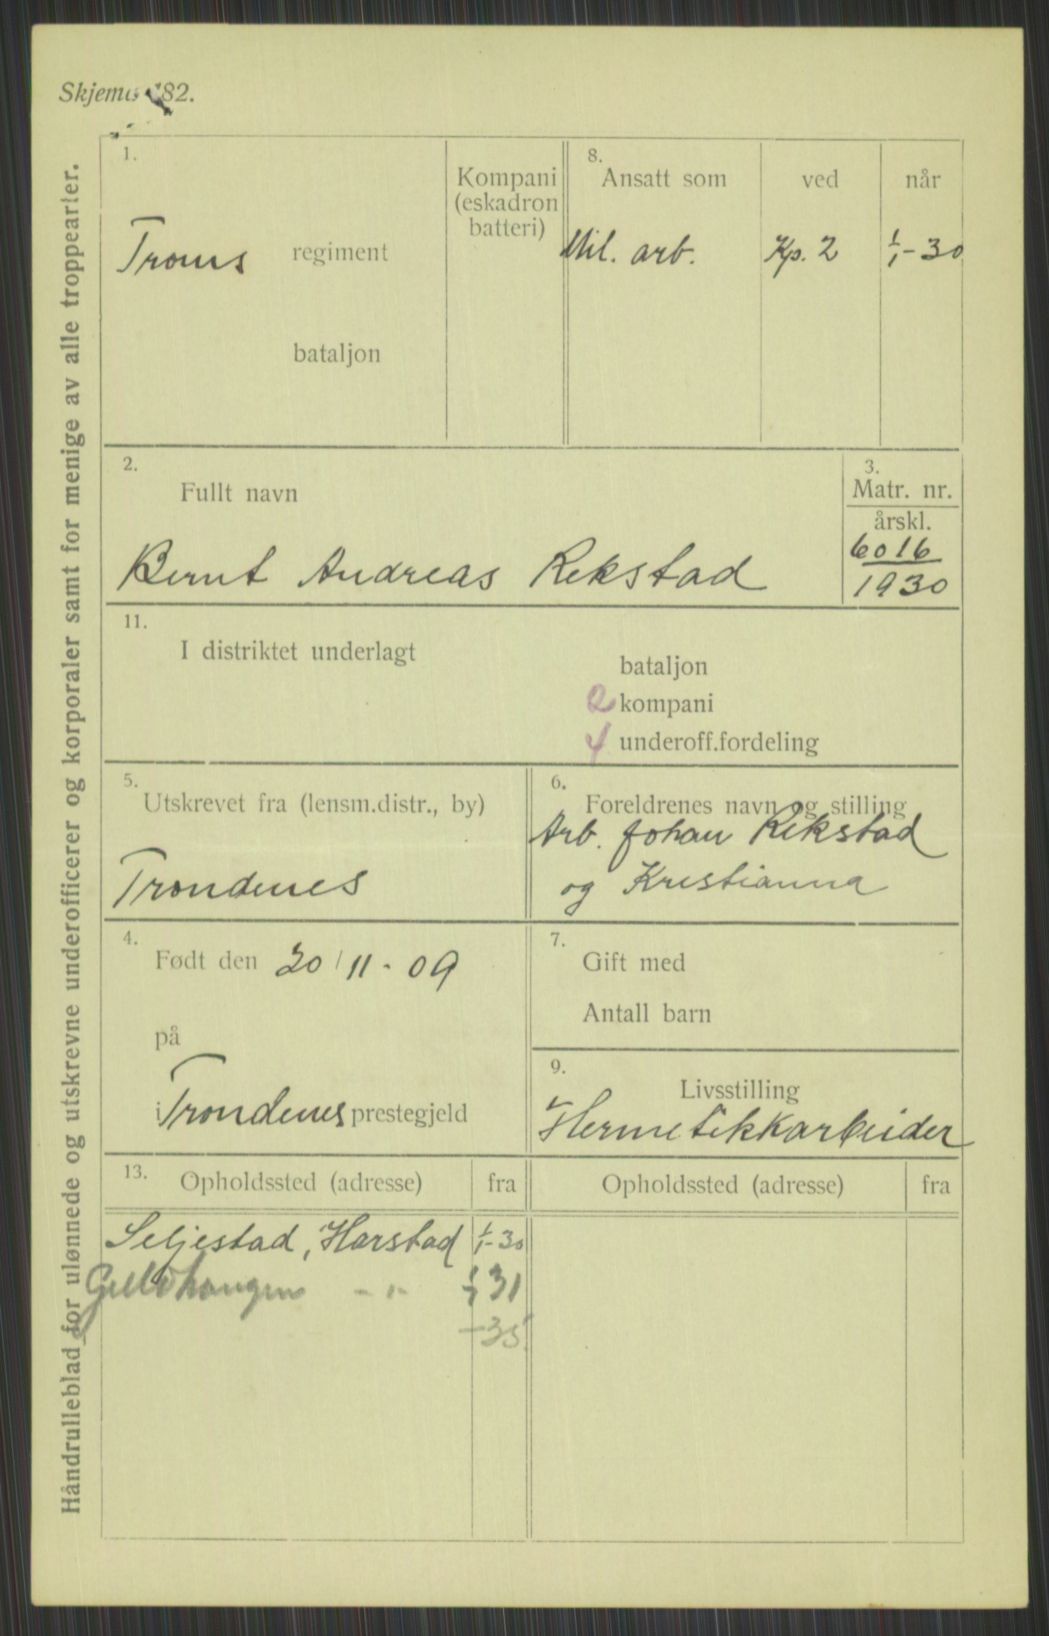 Skjema 782.
Håndrulleblad for ulønnede og utskrevne underofficerer og korporaler samt for menige av alle troppearter.
1.
Troms regiment
bataljon
Kompani
(eskadron
batteri)
8.
Ansatt som ved når
Mil. arb. Kp. 2 1/1-30
2.
Fullt navn
Bernt Andreas Rekstad
3.
Matr. nr.
årskl.
6016
1930
11.
I distriktet underlagt
bataljon
2 kompani
4 underoff.fordeling
5.
Utskrevet fra (lensm.distr., by)
Trondenes
6.
Foreldrenes navn og stilling
Arb. Johan Rekstad
og Kristianna
4.
Født den 20/11-09
på
i Trondenes prestegjeld
7.
Gift med
Antall barn
9.
Livsstilling
Hermetikkarbeider
13. Opholdssted (adresse) fra Opholdssted (adresse) fra
Seljestad, Harstad 1/1-30
-"- 1/1 31
-35